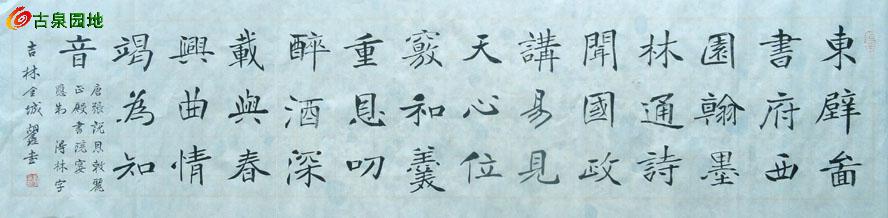 古泉园地
東壁啚
書府西
園翰墨
林通詩
聞國政
講易見
天心位
竅和羹
重恩叨
醉酒深
載與春
興曲情
竭為知
音
唐張說恩敕麗
正殿書院宴
應制 得林字
吉林全城 書